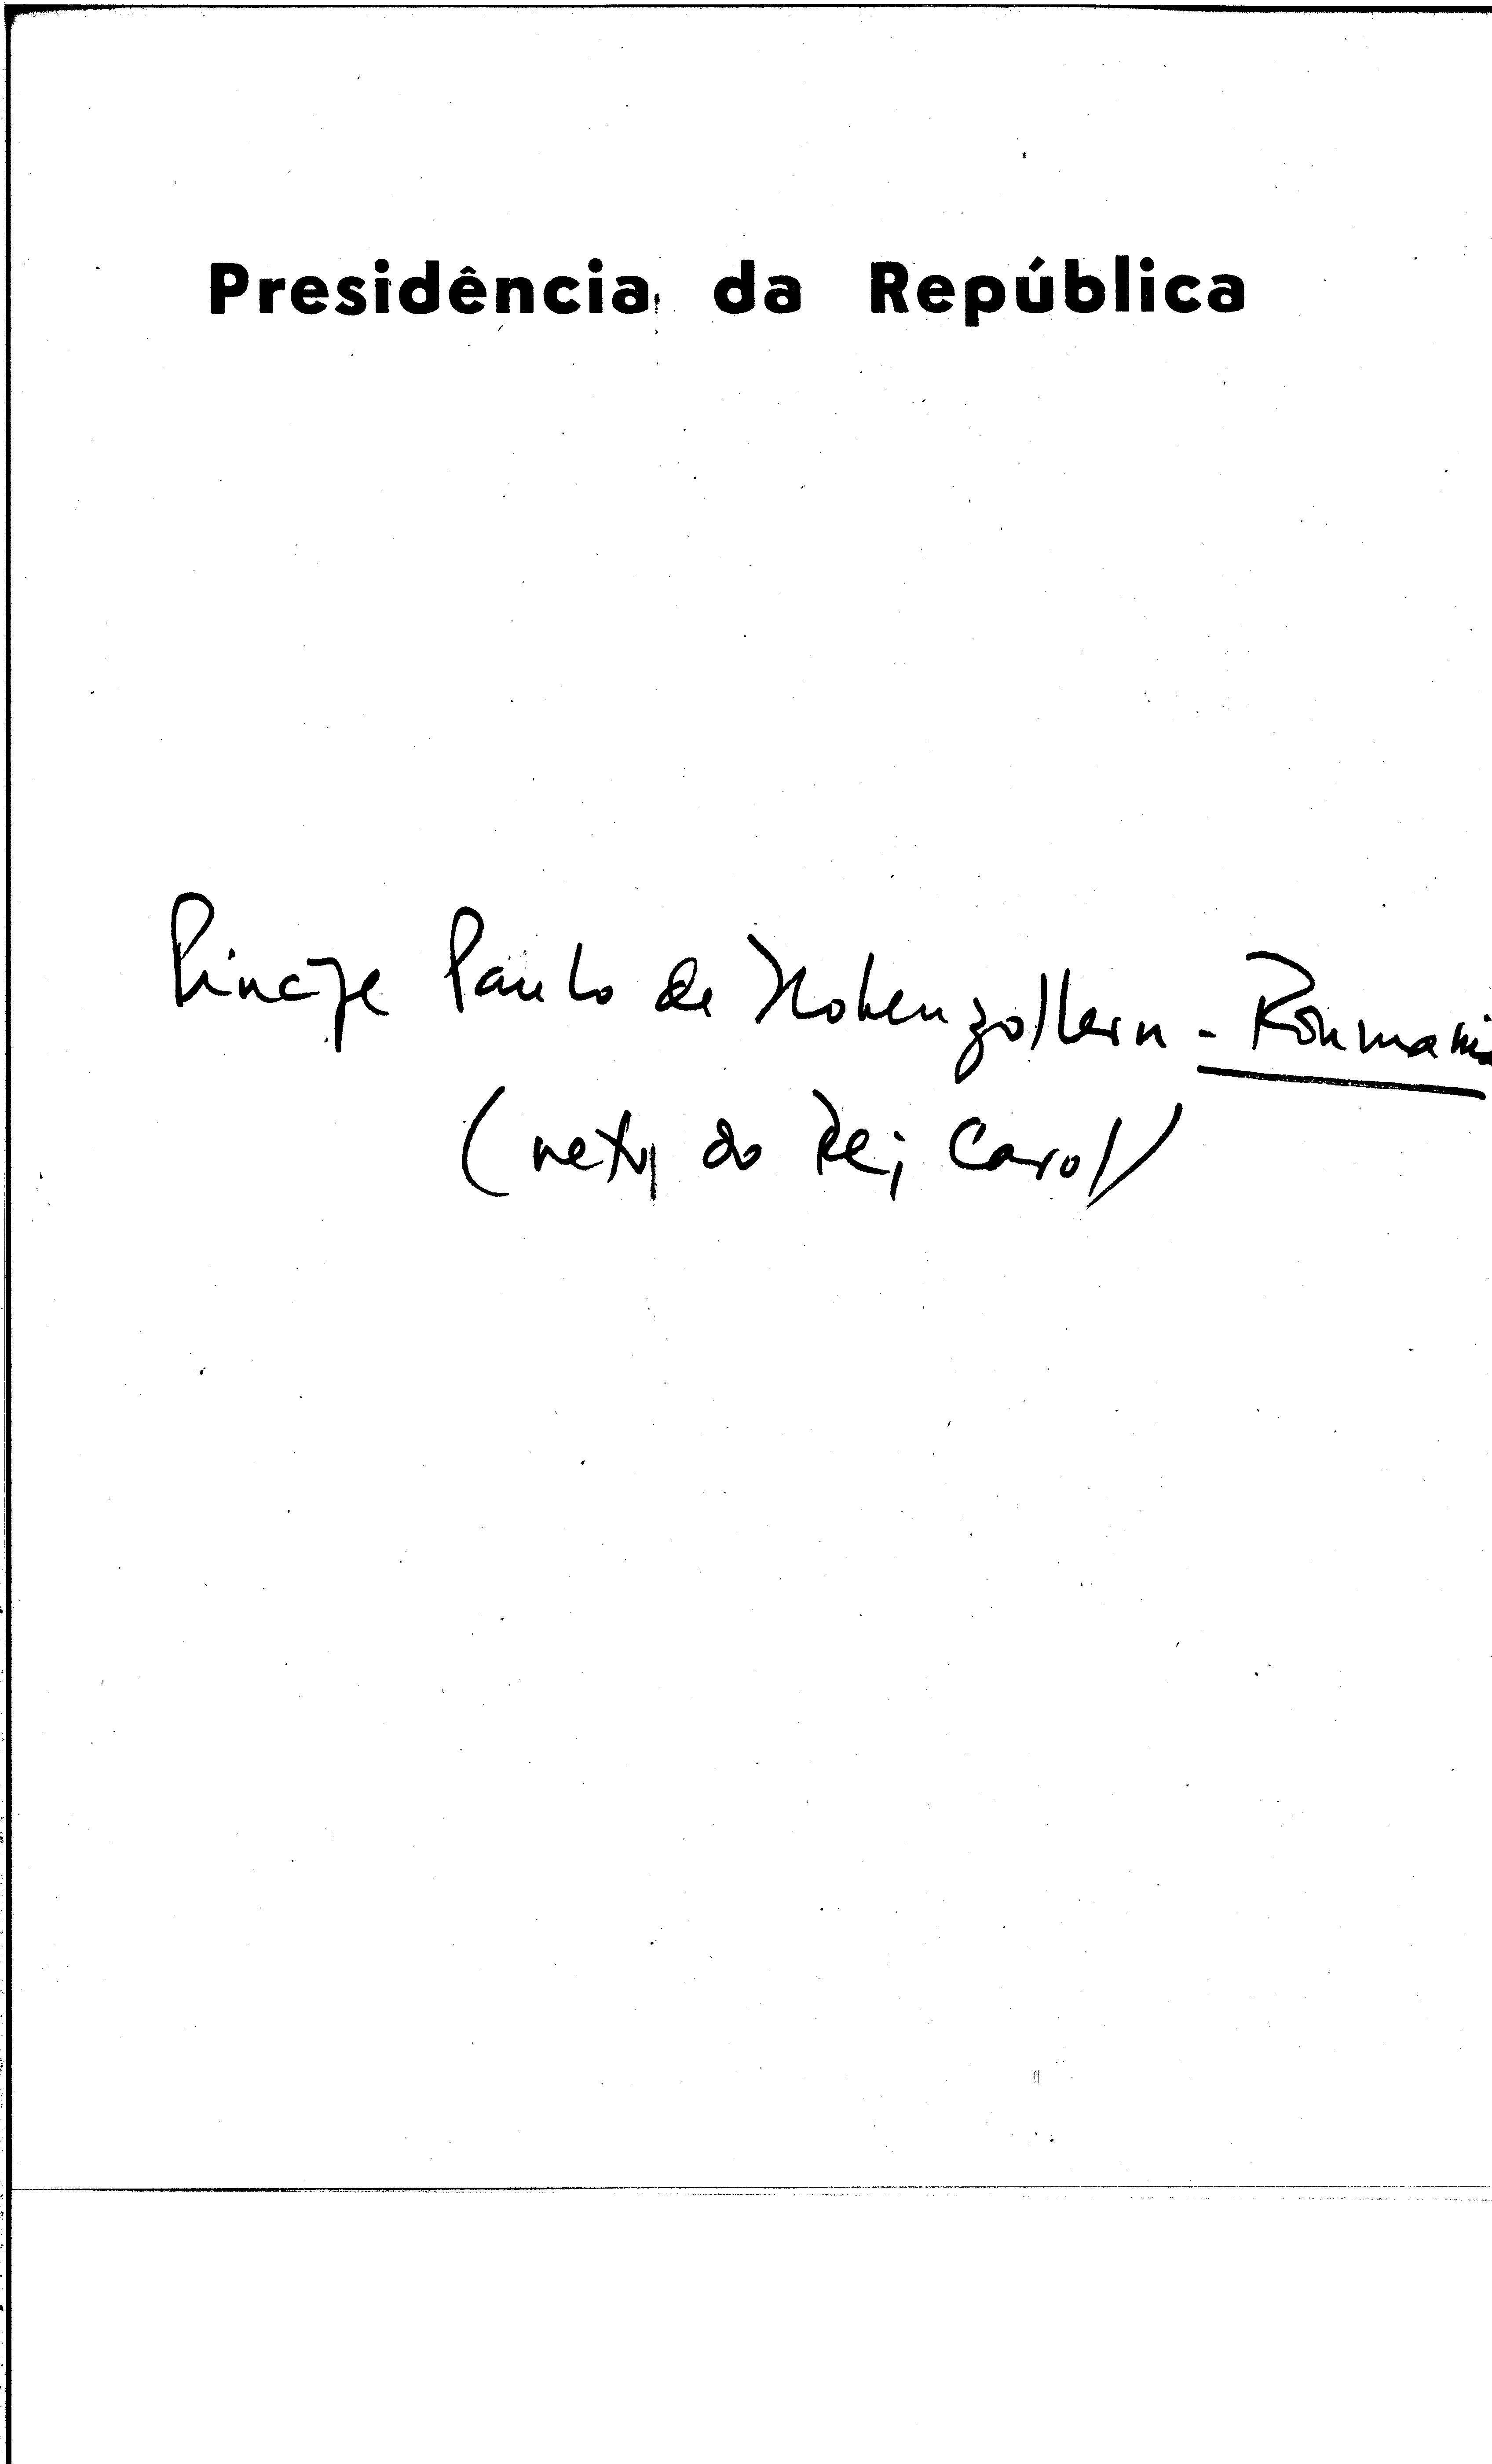 Presidência da República
Principe Paulo de Hohenzollern - Roumania
(neto do Rei Carol)